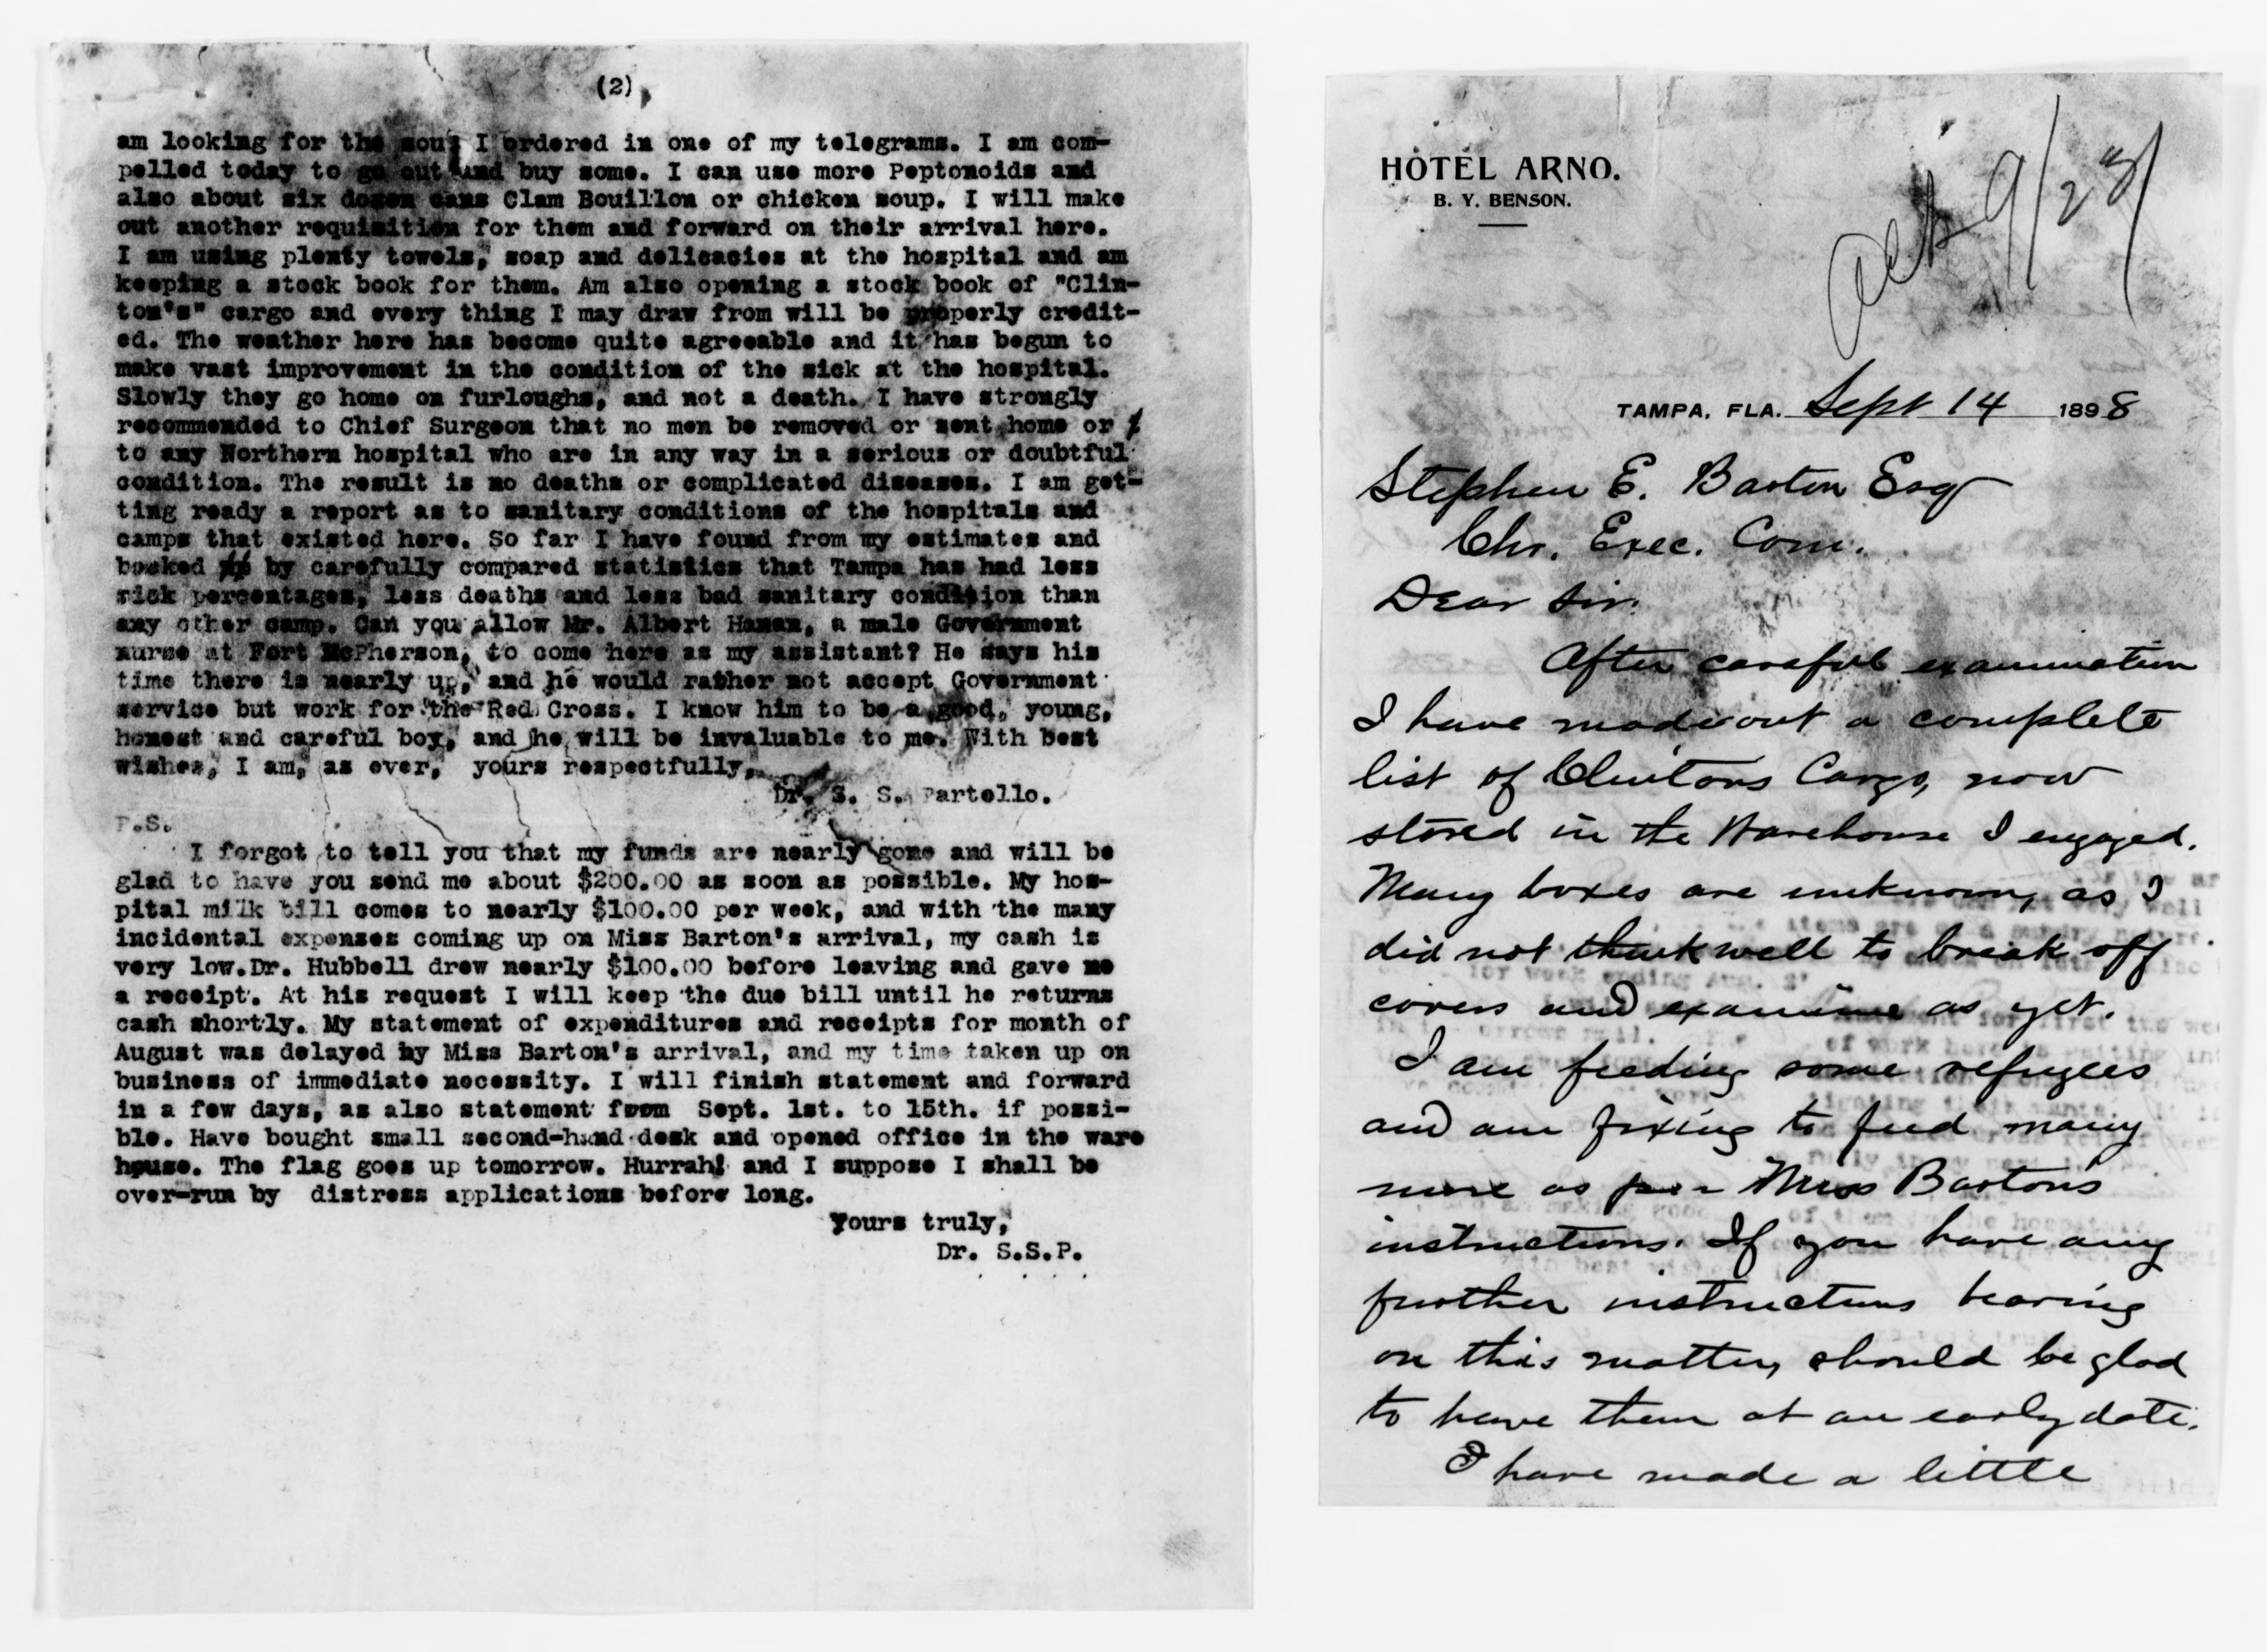 (2)
am looking for the soup I ordered in one of my telegrams. I am com-
pelled today to go out and buy some. I can use more Peptonoids and
also about six dozen cans Clam Bouillon or chicken soup. I will make
out another requisition for them and forward on their arrival here.
I am using plenty towels, soap and delicacies at the hospital and am
keeping a stock book for them. Am also opening a stock book of "Clin-
ton's" cargo and every thing I may draw from will be properly credit-
ed. The weather here has become quite agreeable and it has begun to
make vast improvement in the condition of the sick at the hospital.
Slowly they go home on furloughs, and not a death. I have strongly
recommended to Chief Surgeon that no men be removed or sent home or
to any Northern hospital who are in any way in a serious or doubtful
condition. The result is no deaths or complicated diseases. I am get-
ting ready a report as to sanitary conditions of the hospitals and
camps that existed here. So far I have found from my estimates and
backed by carefully compared statistics that Tampa has had less
sick percentages, less deaths and less bad sanitary condition than
any other camp. Can you allow Mr. Albert Hanan, a male Government
nurse at Fort McPherson, to come here as my assistant? He says his
time there is nearly up, and he would rather not accept Government
service but work for the Red Cross. I know him to be a good, young,
honest and careful boy, and he will be invaluable to me. With best
wishes, I am, as ever, yours respectfully,
Dr. S. S. Partello.
P.S.
I forgot to tell you that my funds are nearly gone and will be
glad to have you send me about $200.00 as soon as possible. My hos-
pital milk bill comes to nearly $100.00 per week, and with the many
incidental expenses coming up on Miss Barton's arrival, my cash is
very low.Dr. Hubbell drew nearly $100.00 before leaving and gave me
a receipt. At his request I will keep the due bill until he returns
cash shortly. My statement of expenditures and receipts for month of
August was delayed by Miss Barton's arrival, and my time taken up on
business of immediate necessity. I will finish statement and forward
in a few days, as also statement from Sept. 1st. to 15th. if possi-
ble. Have bought small second-hand desk and opened office in the ware
house. The flag goes up tomorrow. Hurrah! and I suppose I shall be
over-run by distress applications before long.
Yours truly,
Dr. S.S.P.
HOTEL ARNO.
B. Y. BENSON.
9/23
TAMPA, FLA. Sept 14 1898
Stephen E. Barton Esq
Chr. Exec. Com.
Dear Sir.
After careful examination
I have made out a complete
list of Clintons Cargo, now
stored in the Warehouse I engaged.
Many boxes are unknown, as I
did not think well to break off
covers and examine as yet.
I am feeding some refugees
and am fixing to feed many
more as per Miss Barton's
instructions. If you have any
further instructions bearing
on this matter, should be glad
to have them at an early date.
I have made a little